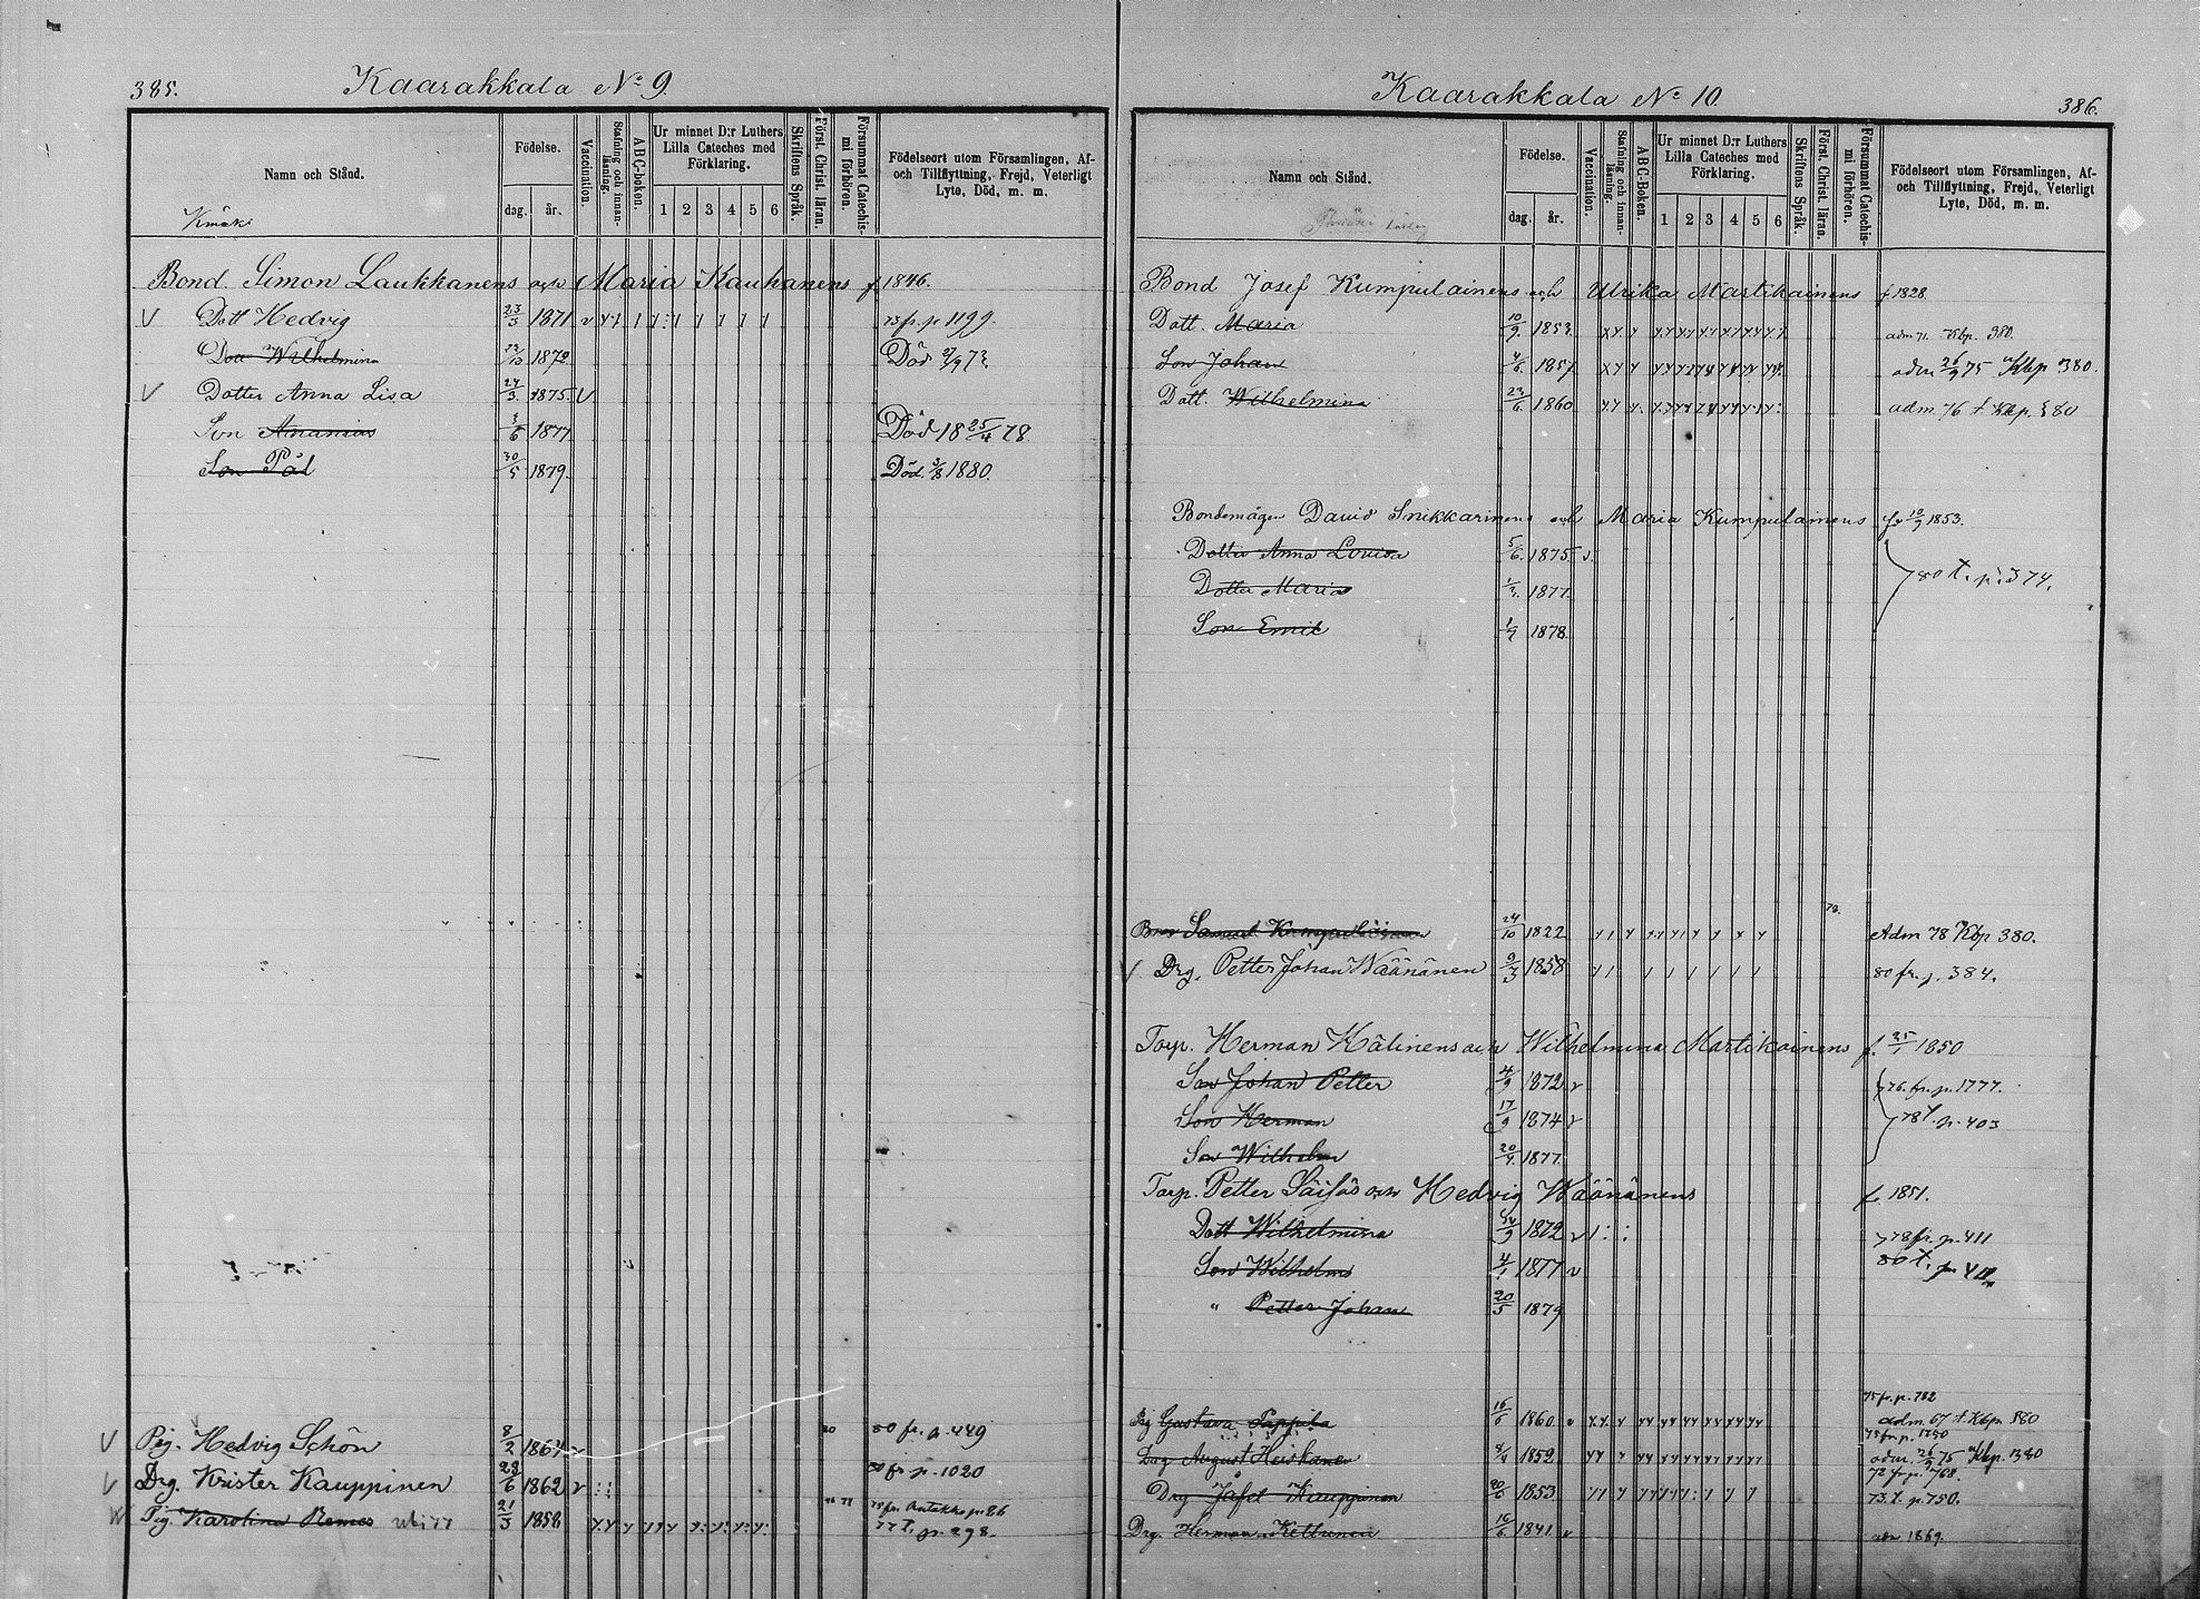 385.
Kaarakkala No 9.
Namn och Stånd.
Födelse.
dag.
år.
Vaccination.
Stafning och innan-läsning.
A B C-boken.
Ur minnet D:r Luthers
Lilla Cateches med
Förklaring.
1 2 3 4 5 6
Skriftens Språk.
Först. Christ. läran.
Försummat Catechis-mi förhören.
Födelseort utom Församlingen, Af-
och Tillflyttning, Frejd, Veterligt
Lyte, Död, m. m.
Bond. Simon Laukkanens och Maria Kauhanens f 1846.
V Dott Hedvig 23/3 1871 73 fr. p 1199.
Dott Wilhelmina 1872 Död
V Dotter Anna Lisa 24/3 1875. V
Son Ananias 1877 Död 18 25/4 78.
Son Pål 30/5 1879. Död. 1880.
V Pig. Hedvig Schön 8/2 1864 80 fr. p. 449
V Drg. Krister Kauppinen 23/6 1862 v 80 fr p. 1020
Pig. Karolina Remes 21/3 1858 77 t. p. 298.
386.
Kaarakkala No 10.
Namn och Stånd.
Födelse.
dag.
år.
Vaccination.
Stafning och innan-läsning.
A B C-Boken.
Ur minnet D:r Luthers
Lilla Cateches med
Förklaring.
1 2 3 4 5 6
Skriftens Språk.
Först. Christ. läran.
Försummat Catechis-mi förhören.
Födelseort utom Församlingen, Af-
och Tillflyttning, Frejd, Veterligt
Lyte, Död, m. m.
Bond Josef Kumpulainens och Ulrika Martikainens f 1828.
Dott. Maria 10/9 1853. adm 71. Kbp. 380.
Son Johan 4/6 1857 adm 26/9 75 Kbp 380.
Dott. Wilhelmina 23/6 1860 adm 76 t Kbp. 380
Bondemågen David Snikkarinens och Maria Kumpulainens f 10/9 1853.
Dotter Anna Lovisa 5/6. 1875 v.
80 t. p. 374.
Dotter Maria 1877.
Son Emil 1/7 1878
78.
Bror Samuel Kumpulainen 24/10 1822 Adm 78 Kbp 380.
V Drg. Petter Johan Wäänänen 9/3 1858 80 fr. p. 384.
Torp. Herman Hälinens och Wilhelmina Martikainens f. 25/1 1850
Son Johan Petter 4/9 1872 v 76. fr. p. 1777.
Son Herman 17/9 1874 v 78 t. p. 403
Son Wilhelm 1877.
Torp. Petter och Hedvig Wäänänens f. 1851.
Dott Wilhelmina 1872 v 78 fr. p. 411
Son Wilhelm 4/1 1877 v 80 t. p.
" Petter Johan 20/5 1879
75 fr. p. 782
Pig Gustava Pappila 16/6 1860. v adm. 67 t. Kbp. 380
75 fr. p. 1750
Drg August Heiskanen 1859 adm. 26/9 75 Kbp. 380
72 fr p. 768.
Drg Jåfet Kauppinen 1853. 73. t. p. 750.
Drg. Herman Kettunen 16/6 1841. v adm 1869.